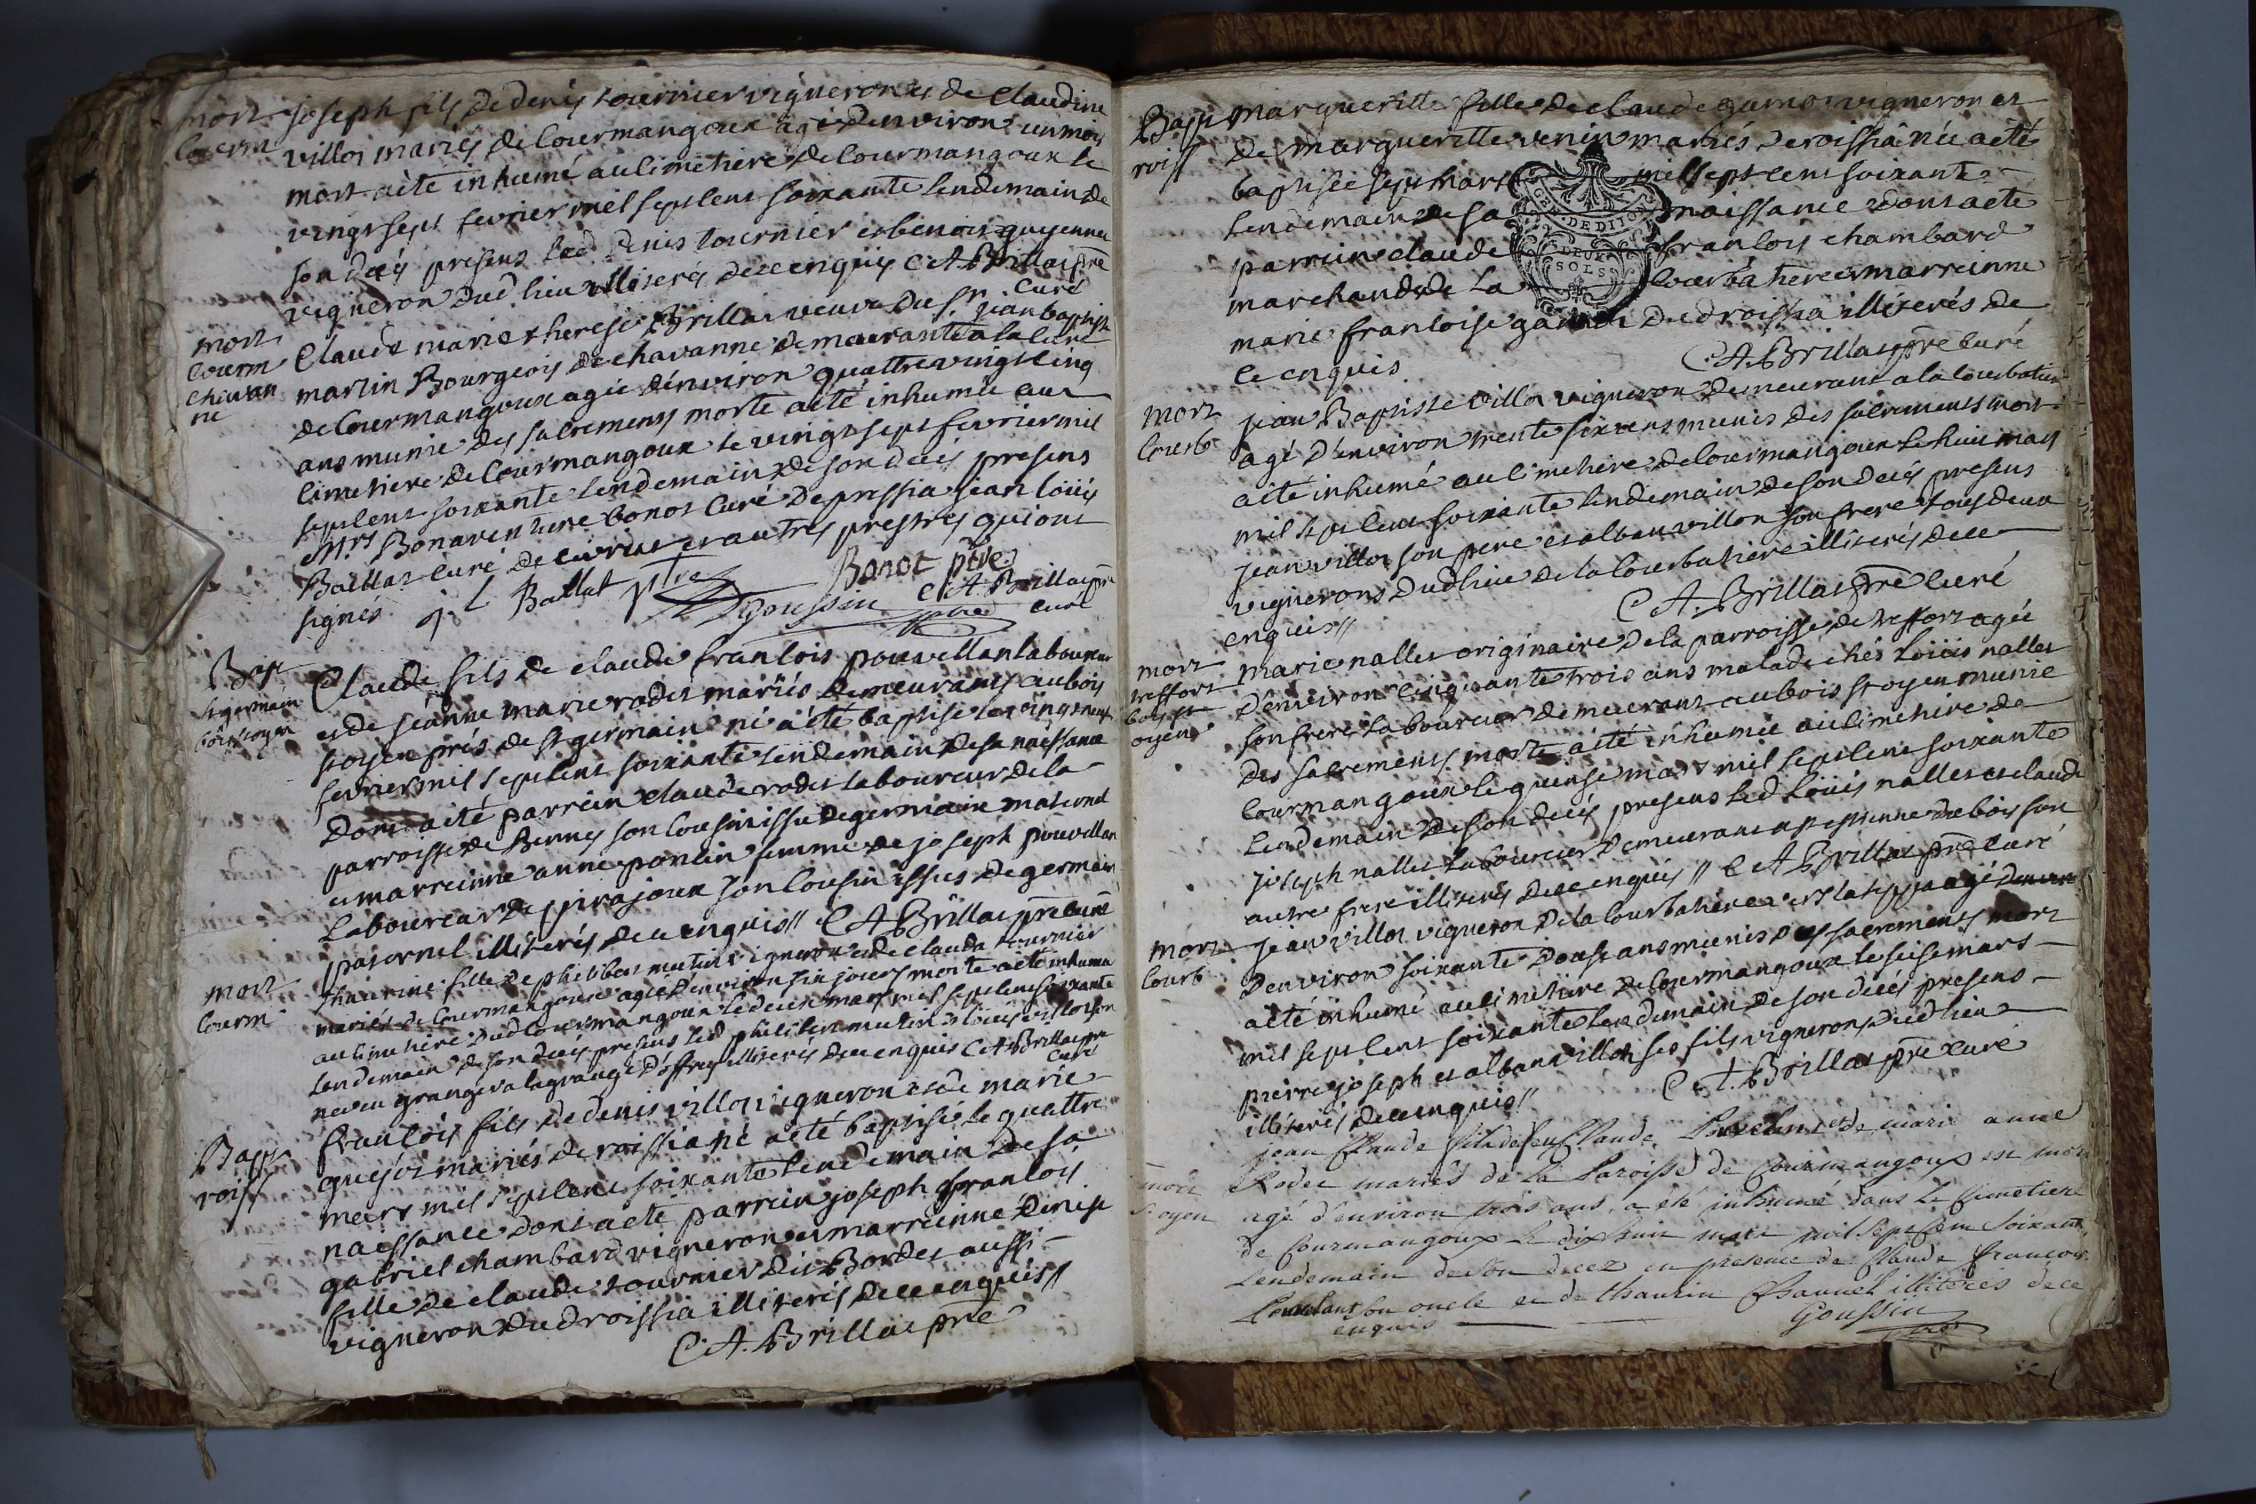 mort joseph fils de denis tournier vigneron et de Claudine
Courm villot mariés de Courmangoux agé denviron un mois
mort a èté inhumé au cimetiere de Courmangoux le
vingt sept fevrier mil sept cent soixante lendemain de
son decés presens led denis tournier et benoit guyennet
vigneron dud lieu illiterés de ce enquis C A Brillat pre
curé
mort Claude marie therese Brillat veuve du sr jean baptiste
Courm martin Bourgeois de chavanne demeurante a la cure
chavan de Courmangoux agée denviron quattre vingt cinq
ne ans munie des sacremens morte a èté inhumée au
cimetiere de Courmangoux le vingt sept fevrier mil
sept cent soixante lendemain de son decés presens
Mrs Bonaventure bonot Curé de pressia jean loüis
Ballat curé de et autres prestres qui ont
signés j. L Ballat ptre Bonot ptre
Goussin C A. Brillat pre
curé
Bapt Claude fils de claude francois pouvillan laboureur
st germain et de jeanne marie rodet mariés demeurants au bois
bois st oyen st oyen prés de st germain né a èté baptisé le vingt neuf
fevrier mil sept cent soixante lendemain de sa naissance
dont acte parrein claude rodet laboureur de la
parroisse de Bennÿ son cousin issu de germain maternel
et marreinne anne poncin femme de joseph pouvillan
laboureur de pirajoux son cousin issus de germain
paternel illiterés de ce enquis // C A Brillat pre curé
mort thaurine fille de philibert mutin vigneron et de clauda tournier
Courm mariés de Courmangoux agée denviron six jours morte a èté inhumée
au cimetiere dud Courmangoux le deux mars mil sept cent soixante
lendemain de son decés presens led philibert mutin et loüis villot son
neveu granger a la grange illiterés de ce enquis C A Brillat pre
curé
Bapt francois fils de denis villot vigneron et de marie
roiss quejot mariés de roissia né a èté baptisé le quattre
mars mil sept cent soixante lendemain de sa
naissance dont acte parrein joseph francois
gabriel chambard vigneron et marreinne denise
fille de claude tournier dit Bordet aussi
vigneron dud roissia illiterés de ce enquis //
C A. Brillat pre
Bapt margueritte fille de claude gamot vigneron et
roiss de margueritte venin mariés de roissia née a èté
baptisée sept mars mil sept cent soixante
lendemain de sa naissance dont acte
parrein claude francois chambard
marchand de la courbatiere et marreinne
marie francoise gamot dud roissia illiterés de
ce enquis C A. Brillat pre curé
GEN. DE DIJON
DEUX
SOLS
mort jean Baptiste villot vigneron demeurant a la courbatiere
Courb agé denviron trente six ans munis des sacremens mort
a èté inhumé au cimetiere de Courmangoux le huit mars
mil sept cent soixante lendemain de son decés presens
jean villot son pere et alban villon son frere tous deux
vignerons dud lieu de la courbatiere illiterés de ce
enquis // C A. Brillat pre curé
mort marie nallet originaire de la parroisse de treffort agée
treffort denviron cinquante trois ans malade chés loüis nallet
bois st son frere laboureur demeurant au bois st oyen munie
oyen des sacremens morte a èté inhumée au cimetiere de
Courmangoux le quinse mars mil sept cent soixante
lendemain de son decés presens led loüis nallet et claude
joseph nallet laboureur demeurant a st estienne du bois son
autre frere illiterés de ce enquis // C A Brillat pre curé
mort jean villot vigneron de la courbatiere agé denviron
Courb denviron soixante douse ans munis des sacremens mort
a èté inhumé au cimetiere de Courmangoux le seise mars
mil sept cent soixante lendemain de son decés presens
pierre joseph et alban villot ses fils vignerons dud lieu
illiterés de ce enquis // C A. Brillat pre curé
jean claude fils de feu claude et de marie anne
mort Rodet mariés de la Paroisse de Courmangoux est mort
st oyen agé d'environ trois ans, a été inhumé dans le cimetiere
de Courmangoux le dix huit mars mil sept cent soixante,
Lendemain de son decez en presence de Claude francois
son oncle et de thaurin illiteres de ce
enquis Goussin
ptre